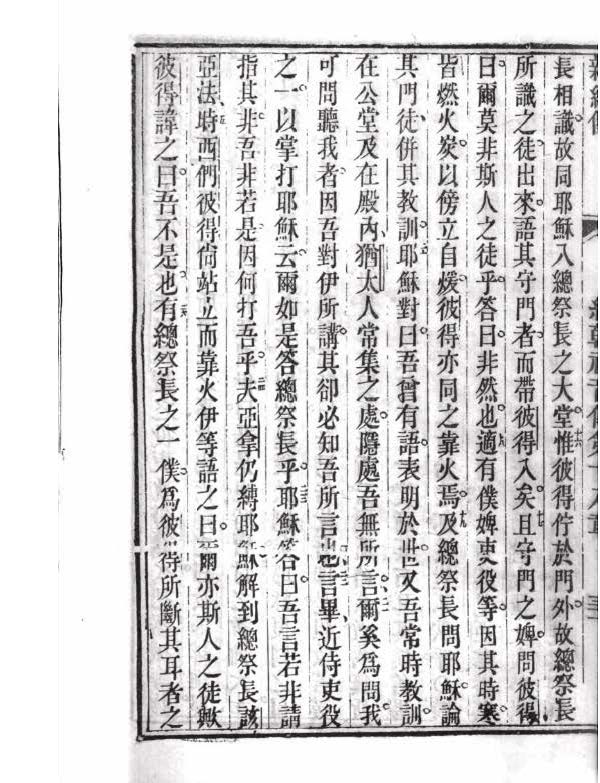 長相識故同耶穌入總祭長之大堂。惟彼得佇於門外。故總祭長
所識之徒出來。語其守門者。而帶彼得入矣。且守門之婢問彼得
曰爾莫非斯人之徒乎。答曰非然也。適有僕婢吏役等。因其時寒。
皆燃火炭以傍立自煖。彼得亦同之靠火焉。及總祭長問耶穌論
其門徒併其教訓。耶穌對曰吾曾有語表明於世。又吾常時教訓。
在公堂及在殿內猶太人常集之處。隱處吾無所言。爾奚為問我
可問聽我者。因吾對伊所講。其卻必知吾所言也。言畢近侍吏役
之一以掌打耶穌云爾如是答總祭長乎。耶穌答曰吾言若非請
指其非。吾非若是。因何打吾乎。夫亞拿仍縛耶穌解到總祭長該
亞法。時西們彼得尙站立而靠火。伊等語之曰。爾亦斯人之徒歟
彼得諱之曰吾不是也。有總祭長之一僕為彼得所斷其耳者之